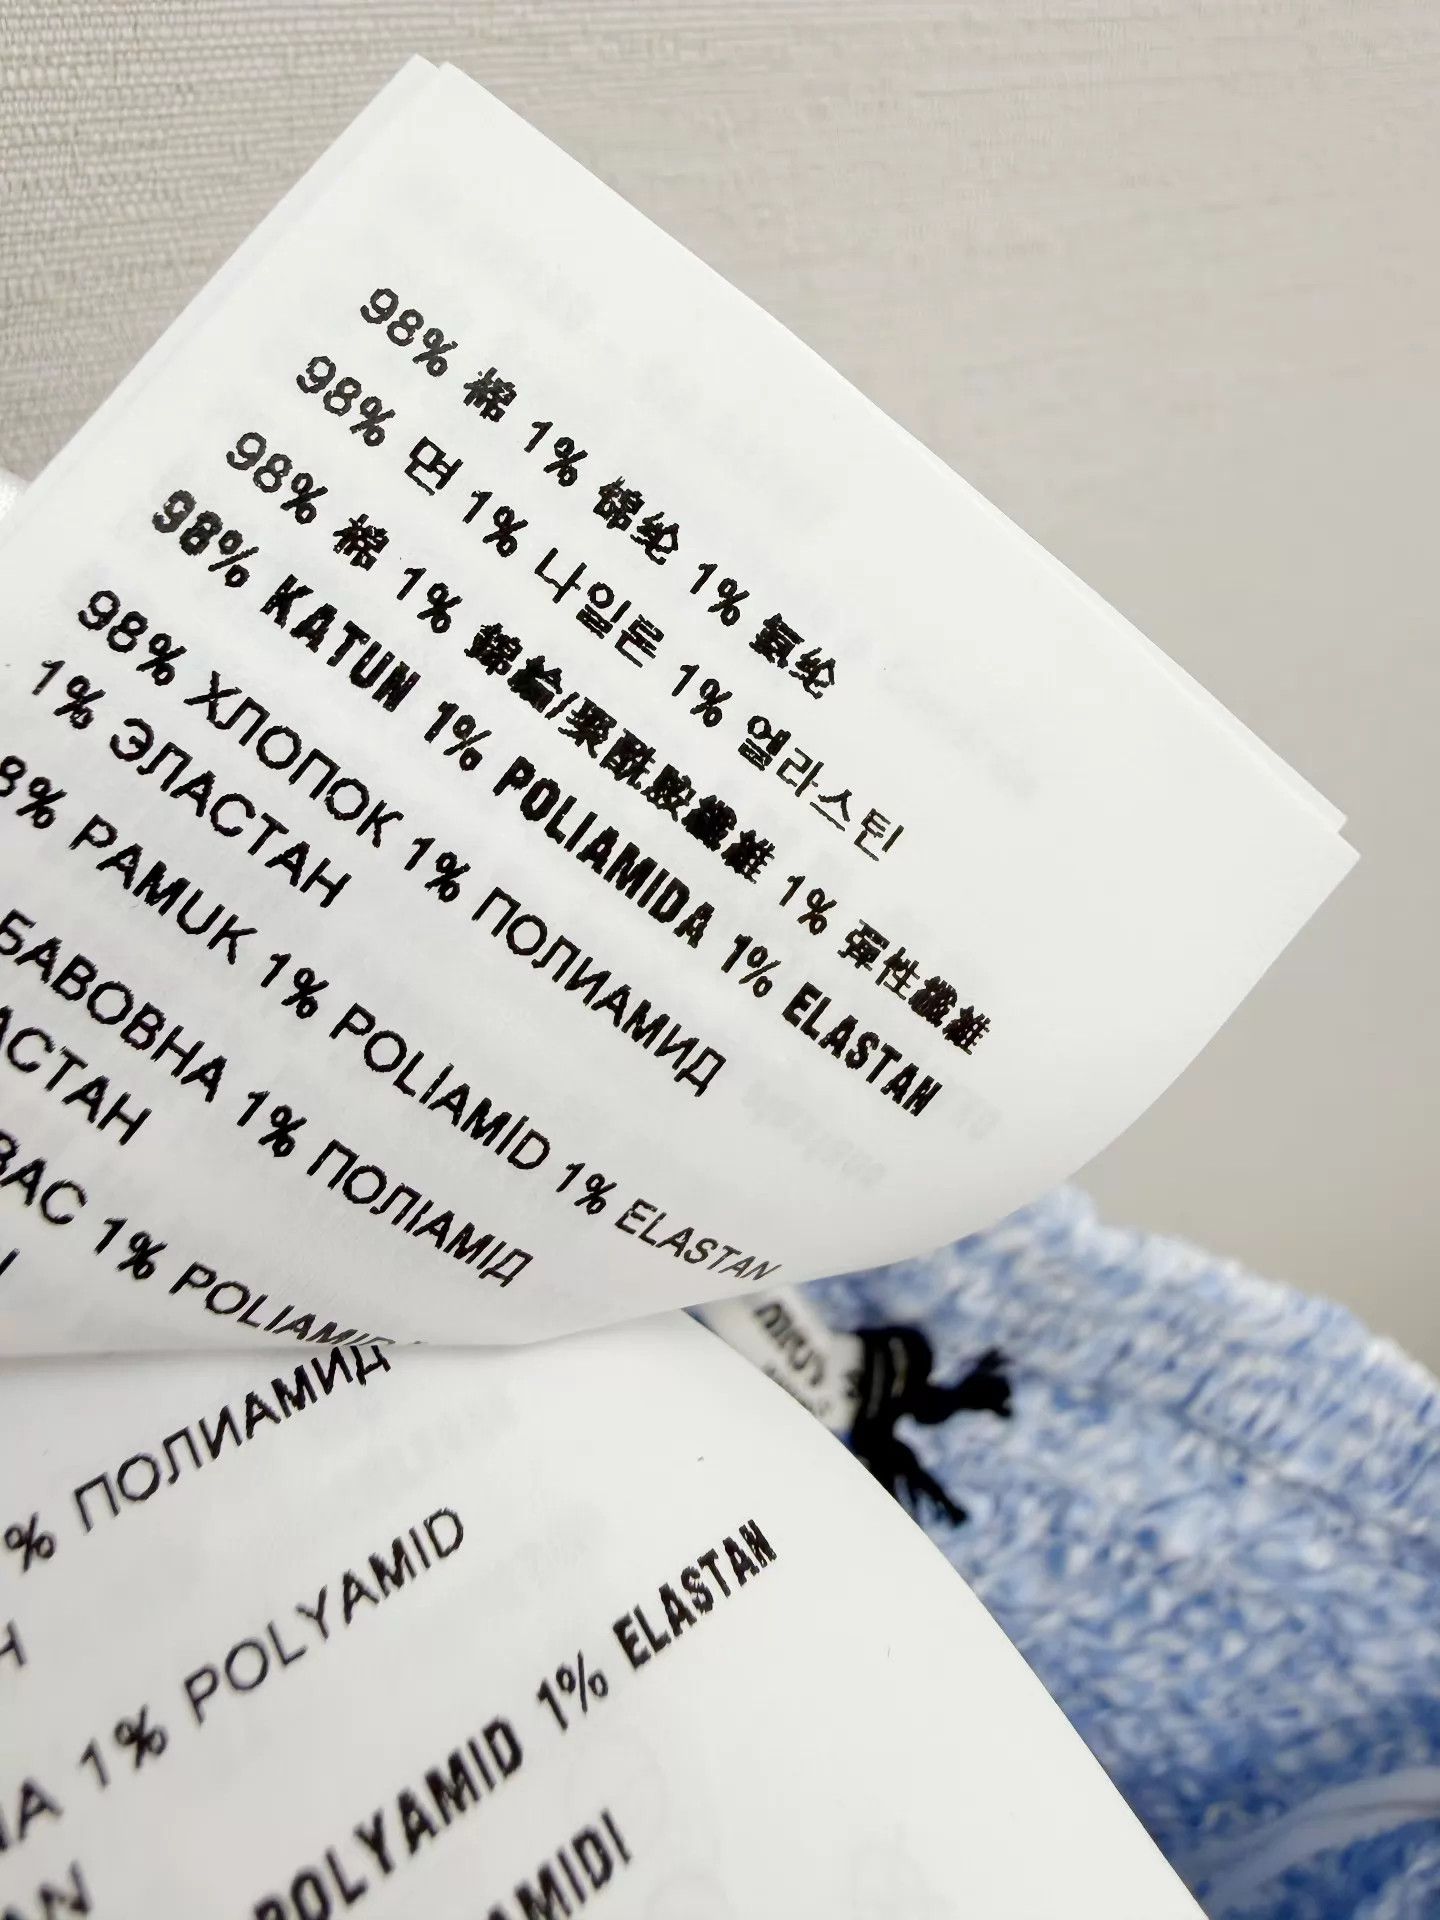 98% 棉 1% 锦纶 1% 氨纶
98% 면 1% 나일론 1% 엘라스틴
98% 棉 1% 錦綸/聚酰胺纖維 1% 彈性纖維
98% KATUN 1% POLIAMIDA 1% ELASTAN
98% ХЛОПОК 1% ПОЛИАМИД
1% ЭЛАСТАН
8% PAMUK 1% POLİAMİD 1% ELASTAN
БАВОВНА 1% ПОЛІАМІД
АСТАН
BAC 1% POLIAMID
% ПОЛИАМИД
H
NA 1% POLYAMID
AN
POLYAMID 1% ELASTAN
AMIDI